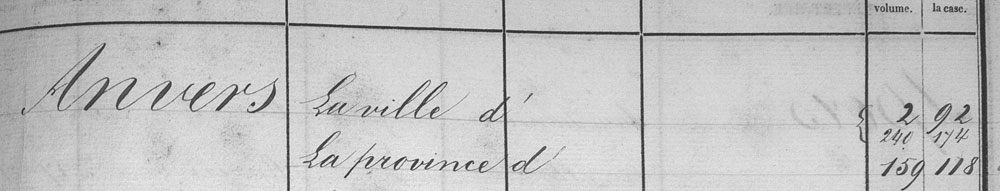 volume. la case.
Anvers La ville d' { 2 92
240 174
La province d' 159 118